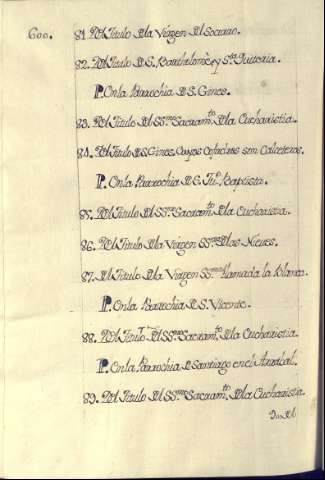 600.
81. Del Titulo de la Virgen del Socorro.
82. Del Titulo de S. Bartholomè, y Sta. Quiteria.
P. En la Parrochia de S. Gines.
83. Del Titulo del SSmo. Sacramto. de la Eucharistia.
84. Del Titulo de S. Gines, Cuyos Cofrades son Calceteros.
P. En la Parrochia de S. Juo. Baptista.
85. Del Titulo del SSmo. Sacramto. de la Eucharistia.
86. Del Titulo de la Virgen SSma. de las Nieves.
87. Del Titulo de la Virgen SSma. llamada la Blanca.
P. En la Parrochia de S. Vicente.
88. Del Titulo del SSmo. Sacramto. de la Eucharistia.
P. En la Parrochia de Santiago en el Arrabal.
89. Del Titulo del SSmo. Sacramto. de la Eucharistia.